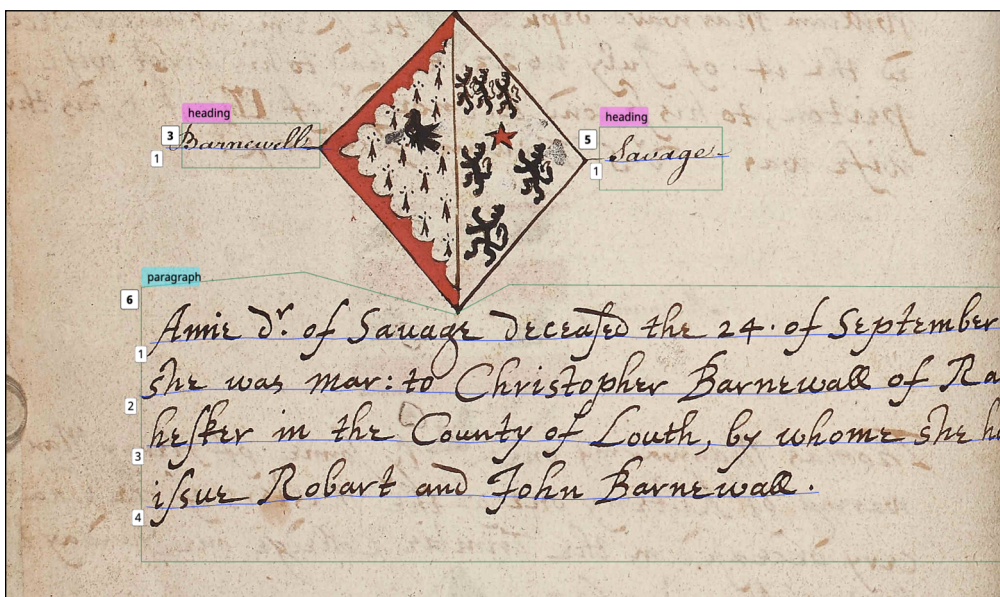 heading
heading
3
5
Barnewell
Savage
1
1
paragraph
6
Amie dr. of Sauage deceased the 24. of September
1
she was mar: to Christopher Barnewall of Ra
2
hesker in the County of Louth, by whome she ha
3
issue Robart and John Barnewall.
4